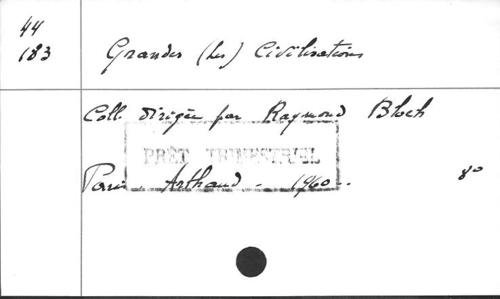 44
183
Grandes (Les) Civilisations
Coll. dirigée par Raymond Bloch
PRÊT TRIMESTRIEL
Paris Arthaud - 1960 -
8°